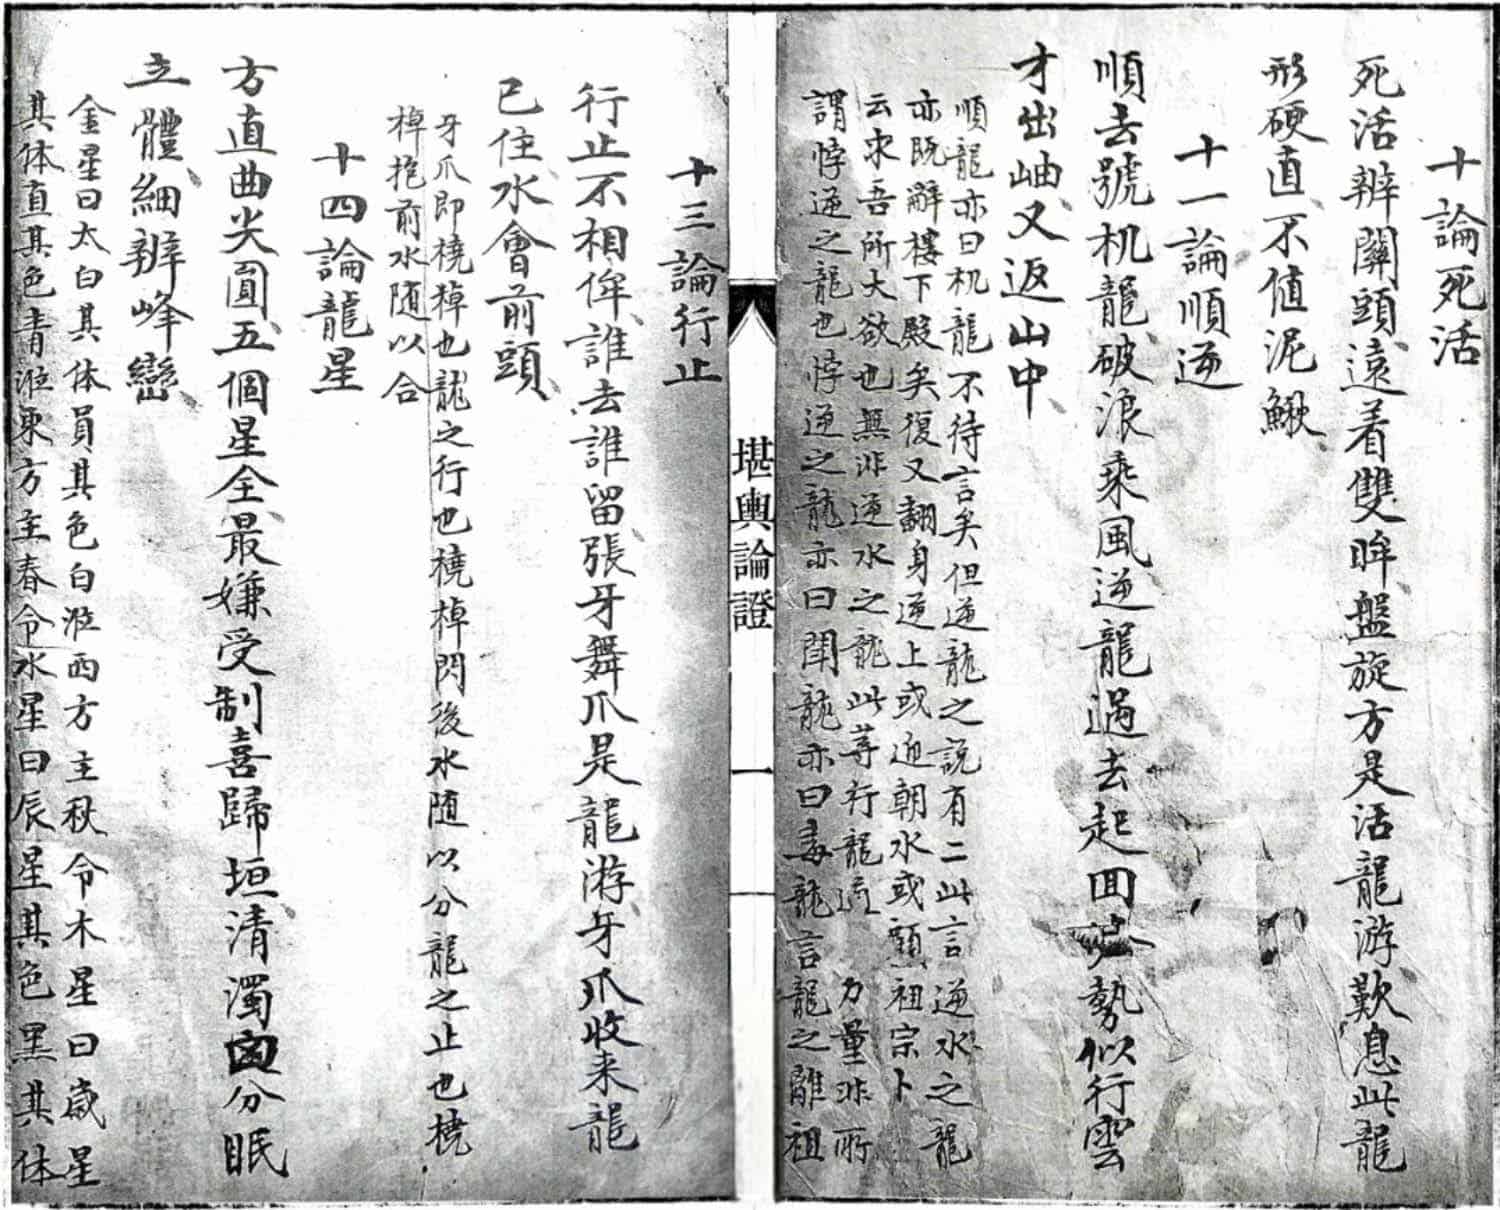 十論死活
死活辨關頭遠着雙眸盤旋方是活龍游歎息此龍
形硬直不值泥鰍
十一論順逆
順去號机龍破浪乘風逆龍過去起回勢似行雲
才出岫又返山中
順龍亦曰机龍不待言矣但逆龍之說有二此言逆水之龍
亦既辭樓下殿矣復又翻身逆上或迎朝水或顧祖宗卜
云求吾所大欲也無非逆水之龍此等行龍力量非所
謂悖逆之龍也悖逆之龍亦曰龍亦曰毒龍言龍之離祖
堪輿論證
一
十三論行止
行止不相侔誰去誰留張牙舞爪是龍游牙爪收来龍
已住水會前頭
牙爪即橈棹也龍之行也橈棹閃後水随以分龍之止也橈
棹抱前水随以合
十四論龍星
方直曲尖圓五個星全最嫌受制喜歸垣清濁分眠
立體細辨峰巒
金星曰太白其体員其色白淮西方主秋令木星曰歲星
其体直其色青淮東方主春令水星曰辰星其色黑其体